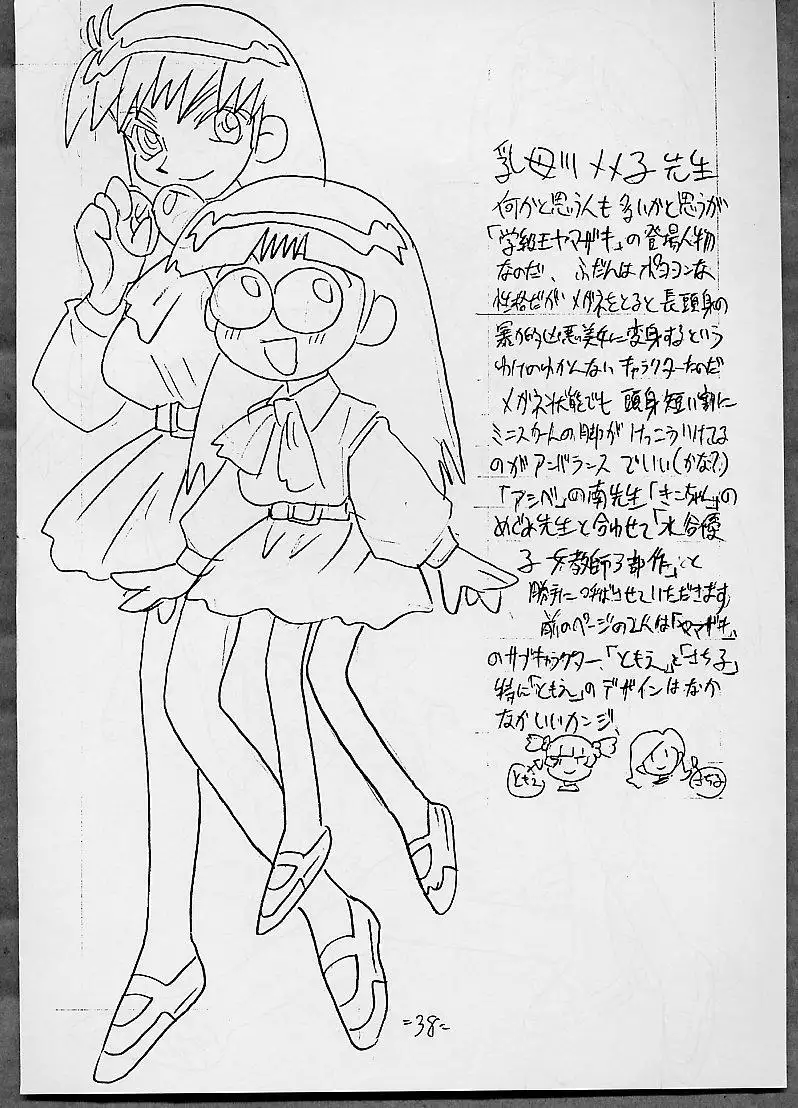 乳母川メメ子先生
何かと思う人も多いかと思うが
「学級王ヤマザキ」の登場人物
なのだ、ふだんはポヨヨンな
性格だがメガネをとると長頭身の
暴力的凶悪美女に変身するという
わけのわかんないキャラクターなのだ
メガネ状態でも頭身短い割に
ミニスカートの脚がけっこういけてる
のがアンバランスでいい(かな?)
「アシベ」の南先生「きこちゃん」の
めぐみ先生と合わせて「水谷優
子女教師3部作」と
勝手に呼ばさせていただきます
前のページの2人は「ヤマザキ」
のサブキャラクター、「ともえ」と「さち子」
特に「ともえ」のデザインはなか
なかいいカンジ
ともえ さち子
=38=